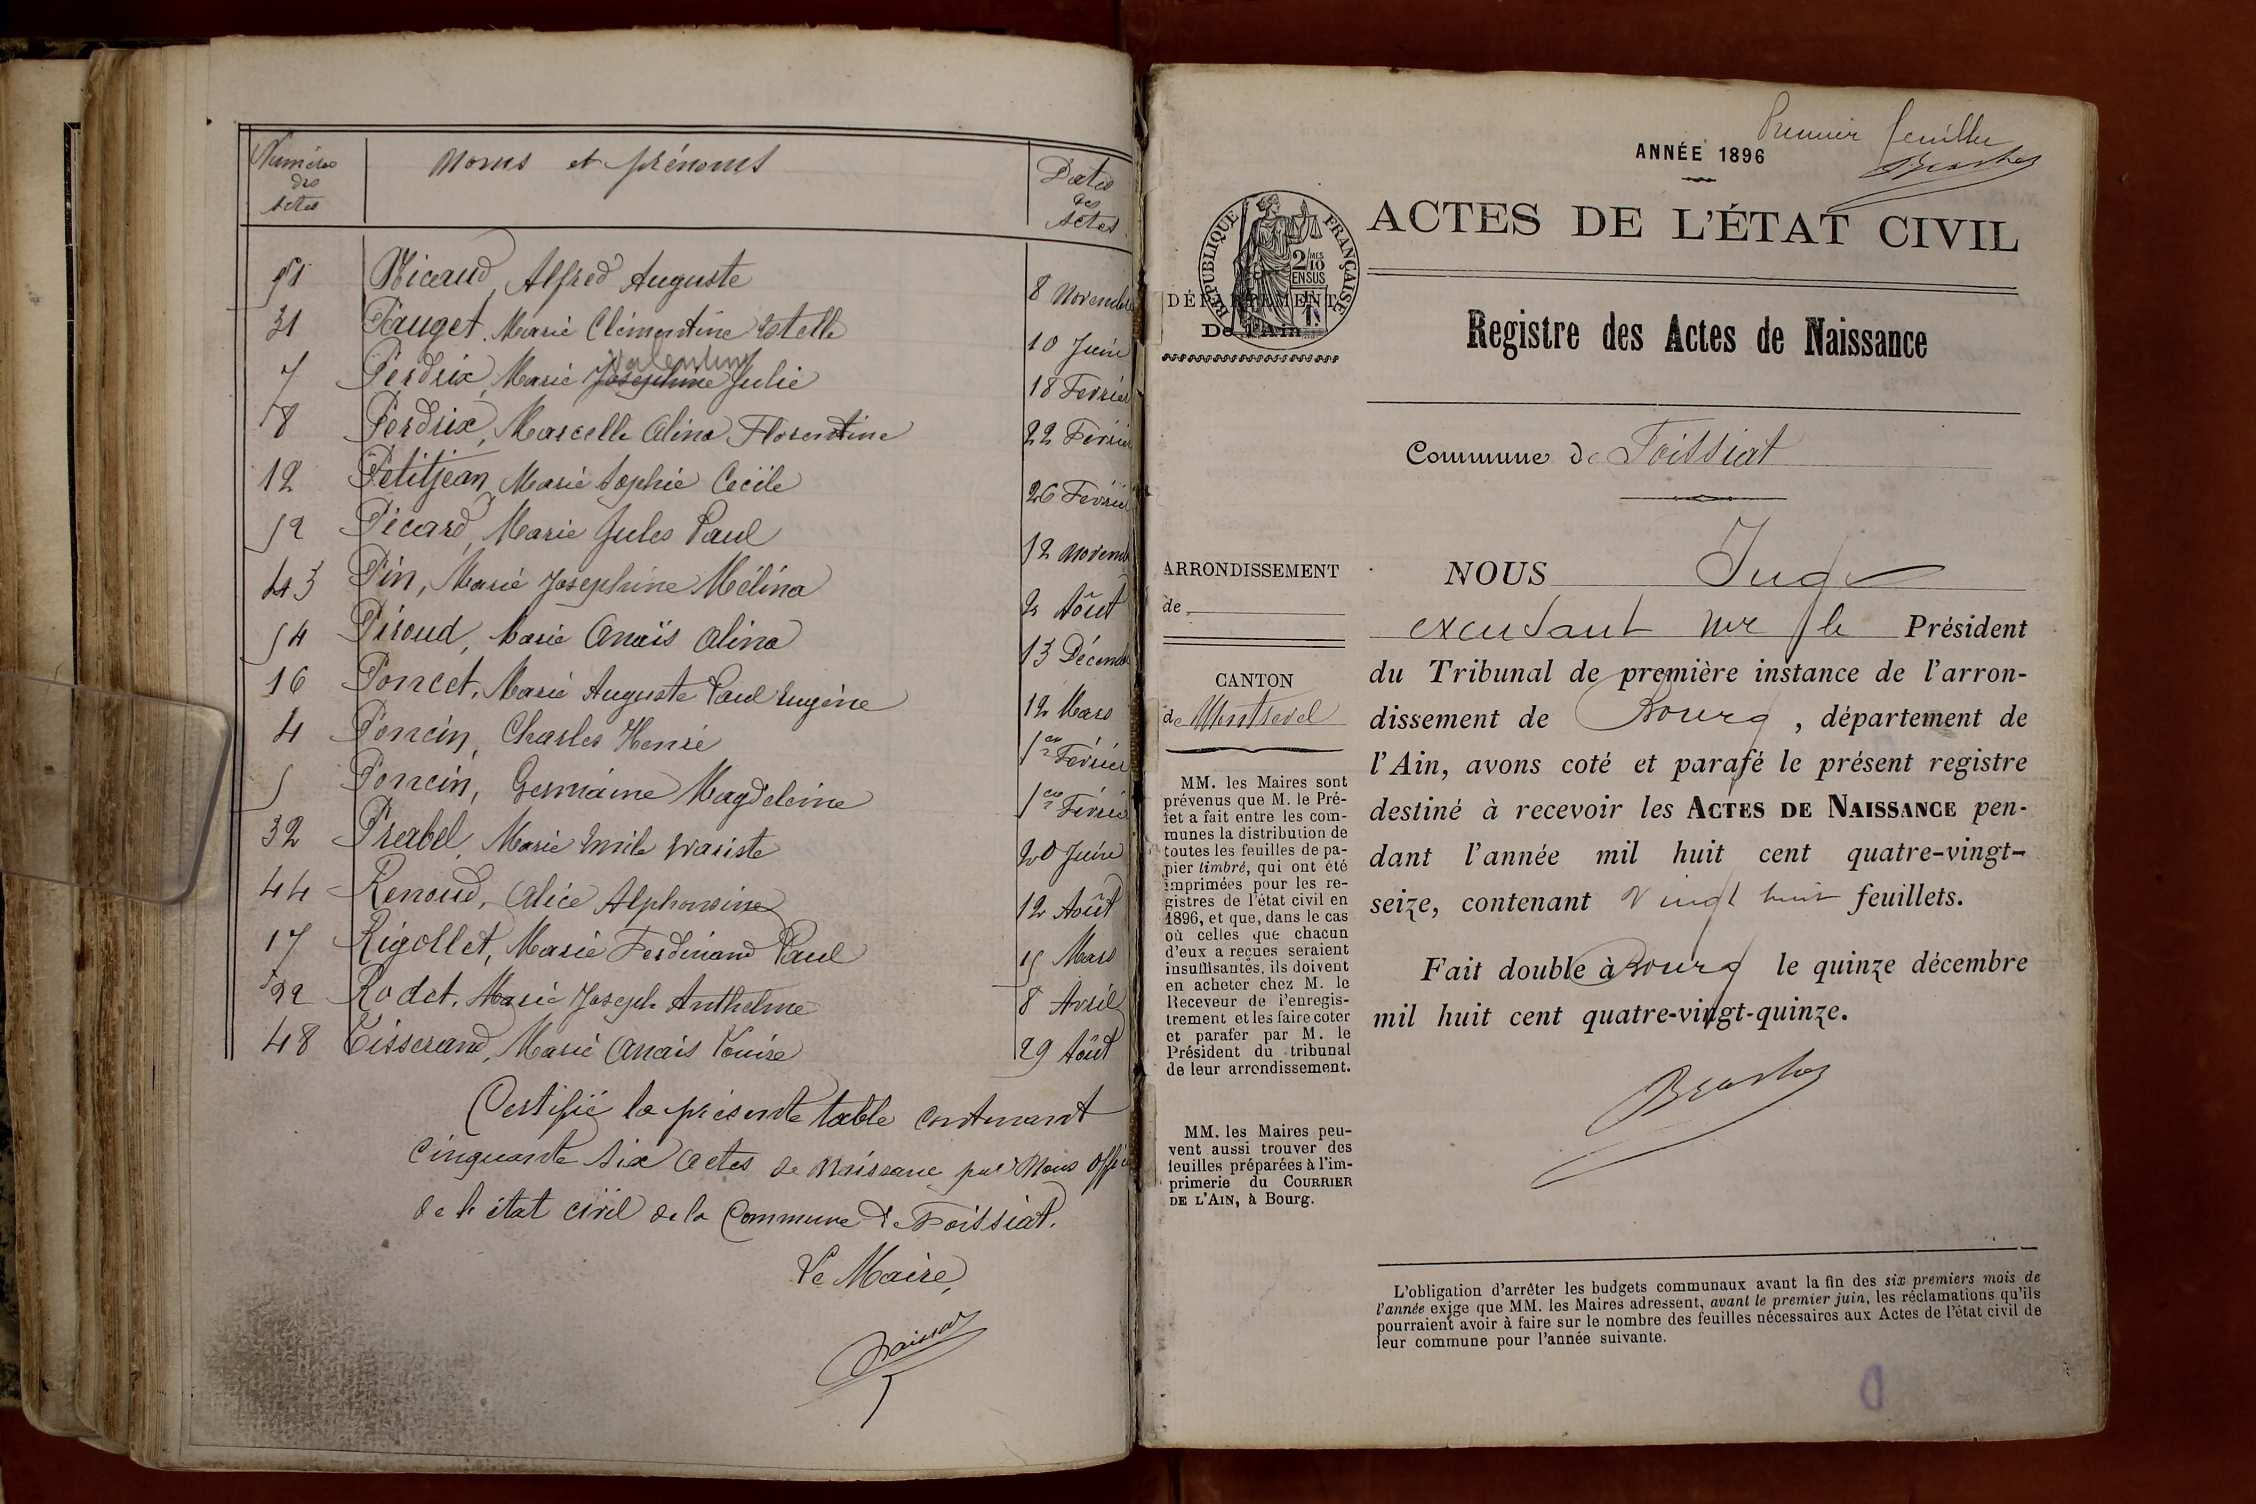 Numéros des Actes | Noms et prénoms | Dates des Actes
51 Nicaud, Alfred Auguste 8 Novembre
31 Pauget, Marie Clémentine Estelle 10 Juin
7 Perdrix, Marie Joséphine Valentine Julie 18 Février
8 Perdrix, Marcelle Alina Florentine 22 Février
12 Petitjean, Marie Sophie Cécile 26 Février
52 Picard, Marie Jules Paul 12 Novemb
43 Pin, Marie Joséphine Mélina 2 Août
54 Piroud, Marie Anaïs Alina 13 Décemb
16 Poncet, Marie Auguste Paul Eugène 12 Mars
4 Poncin, Charles Henri 1er Février
5 Poncin, Germaine Magdeleine 1er Février
32 Prabel, Marie Emile Evariste 20 Juin
44 Renoud, Alice Alphonsine 12 Août
17 Rigollet, Marie Ferdinand Paul 15 Mars
22 Rodet, Marie Joseph Anthelme 8 Avril
48 Tisserand, Marie Anais Louise 29 Août
Certifié la présente table contenant
cinquante six actes de Naissance par Nous Offi
de l'état civil de la Commune de Foissiat.
Le Maire,
Premier feuillet
ANNÉE 1896
ACTES DE L'ÉTAT CIVIL
RÉPUBLIQUE FRANÇAISE
2/10 EN SUS
DÉPARTEMENT
De l'Ain
Registre des Actes de Naissance
Commune de Foissiat
ARRONDISSEMENT
de
CANTON
de Montrevel
MM. les Maires sont
prévenus que M. le Pré-
fet a fait entre les com-
munes la distribution de
toutes les feuilles de pa-
pier timbré, qui ont été
imprimées pour les re-
gistres de l'état civil en
1896, et que, dans le cas
où celles que chacun
d'eux a reçues seraient
insuffisantes, ils doivent
en acheter chez M. le
Receveur de l'enregis-
trement et les faire coter
et parafer par M. le
Président du tribunal
de leur arrondissement.
MM. les Maires peu-
vent aussi trouver des
feuilles préparées à l'im-
primerie du COURRIER
DE L'AIN, à Bourg.
NOUS Juge
excusant Mr le Président
du Tribunal de première instance de l'arron-
dissement de Bourg, département de
l'Ain, avons coté et parafé le présent registre
destiné à recevoir les ACTES DE NAISSANCE pen-
dant l'année mil huit cent quatre-vingt-
seize, contenant vingt huit feuillets.
Fait double à Bourg le quinze décembre
mil huit cent quatre-vingt-quinze.
L'obligation d'arrêter les budgets communaux avant la fin des six premiers mois de
l'année exige que MM. les Maires adressent, avant le premier juin, les réclamations qu'ils
pourraient avoir à faire sur le nombre des feuilles nécessaires aux Actes de l'état civil de
leur commune pour l'année suivante.